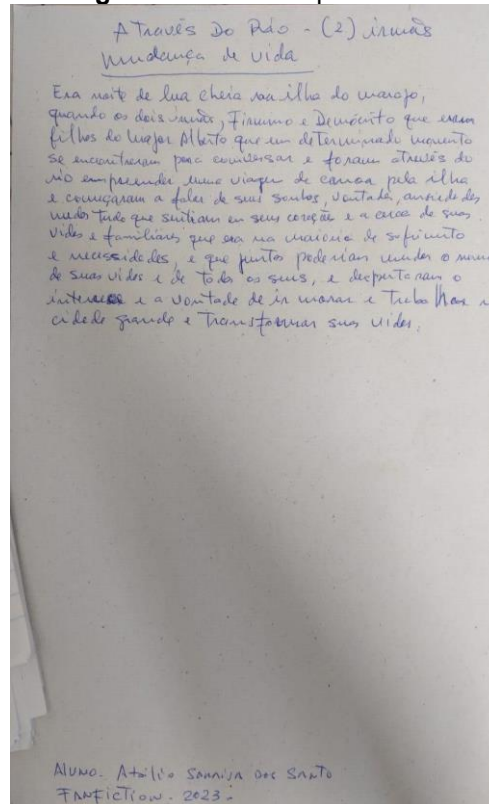 ATravés Do Rio - (2) irmãos
Mudança de vida
Era noite de lua cheia na ilha do marajo,
quando os dois irmãos, Firmino e Demócrito que eram
filhos do major Alberto que em determinado momento
se encontraram para conversar e foram através do
rio empreender uma viagem de canoa pela ilha
e começaram a falar de seus sonhos, vontades, ansiedades
medos tudo que sentiam em seus coração e a cerca de suas
vidas e familiares que era na maioria de sofrimento
e necessidades, e que juntos poderiam mudar o
de suas vidas e de todos os seus, e despertaram o
interesse e a vontade de ir morar e Trabalhar
cidade grande e Transformar suas vidas.
Aluno. Atílio dos Santo
FANFICTION. 2023.